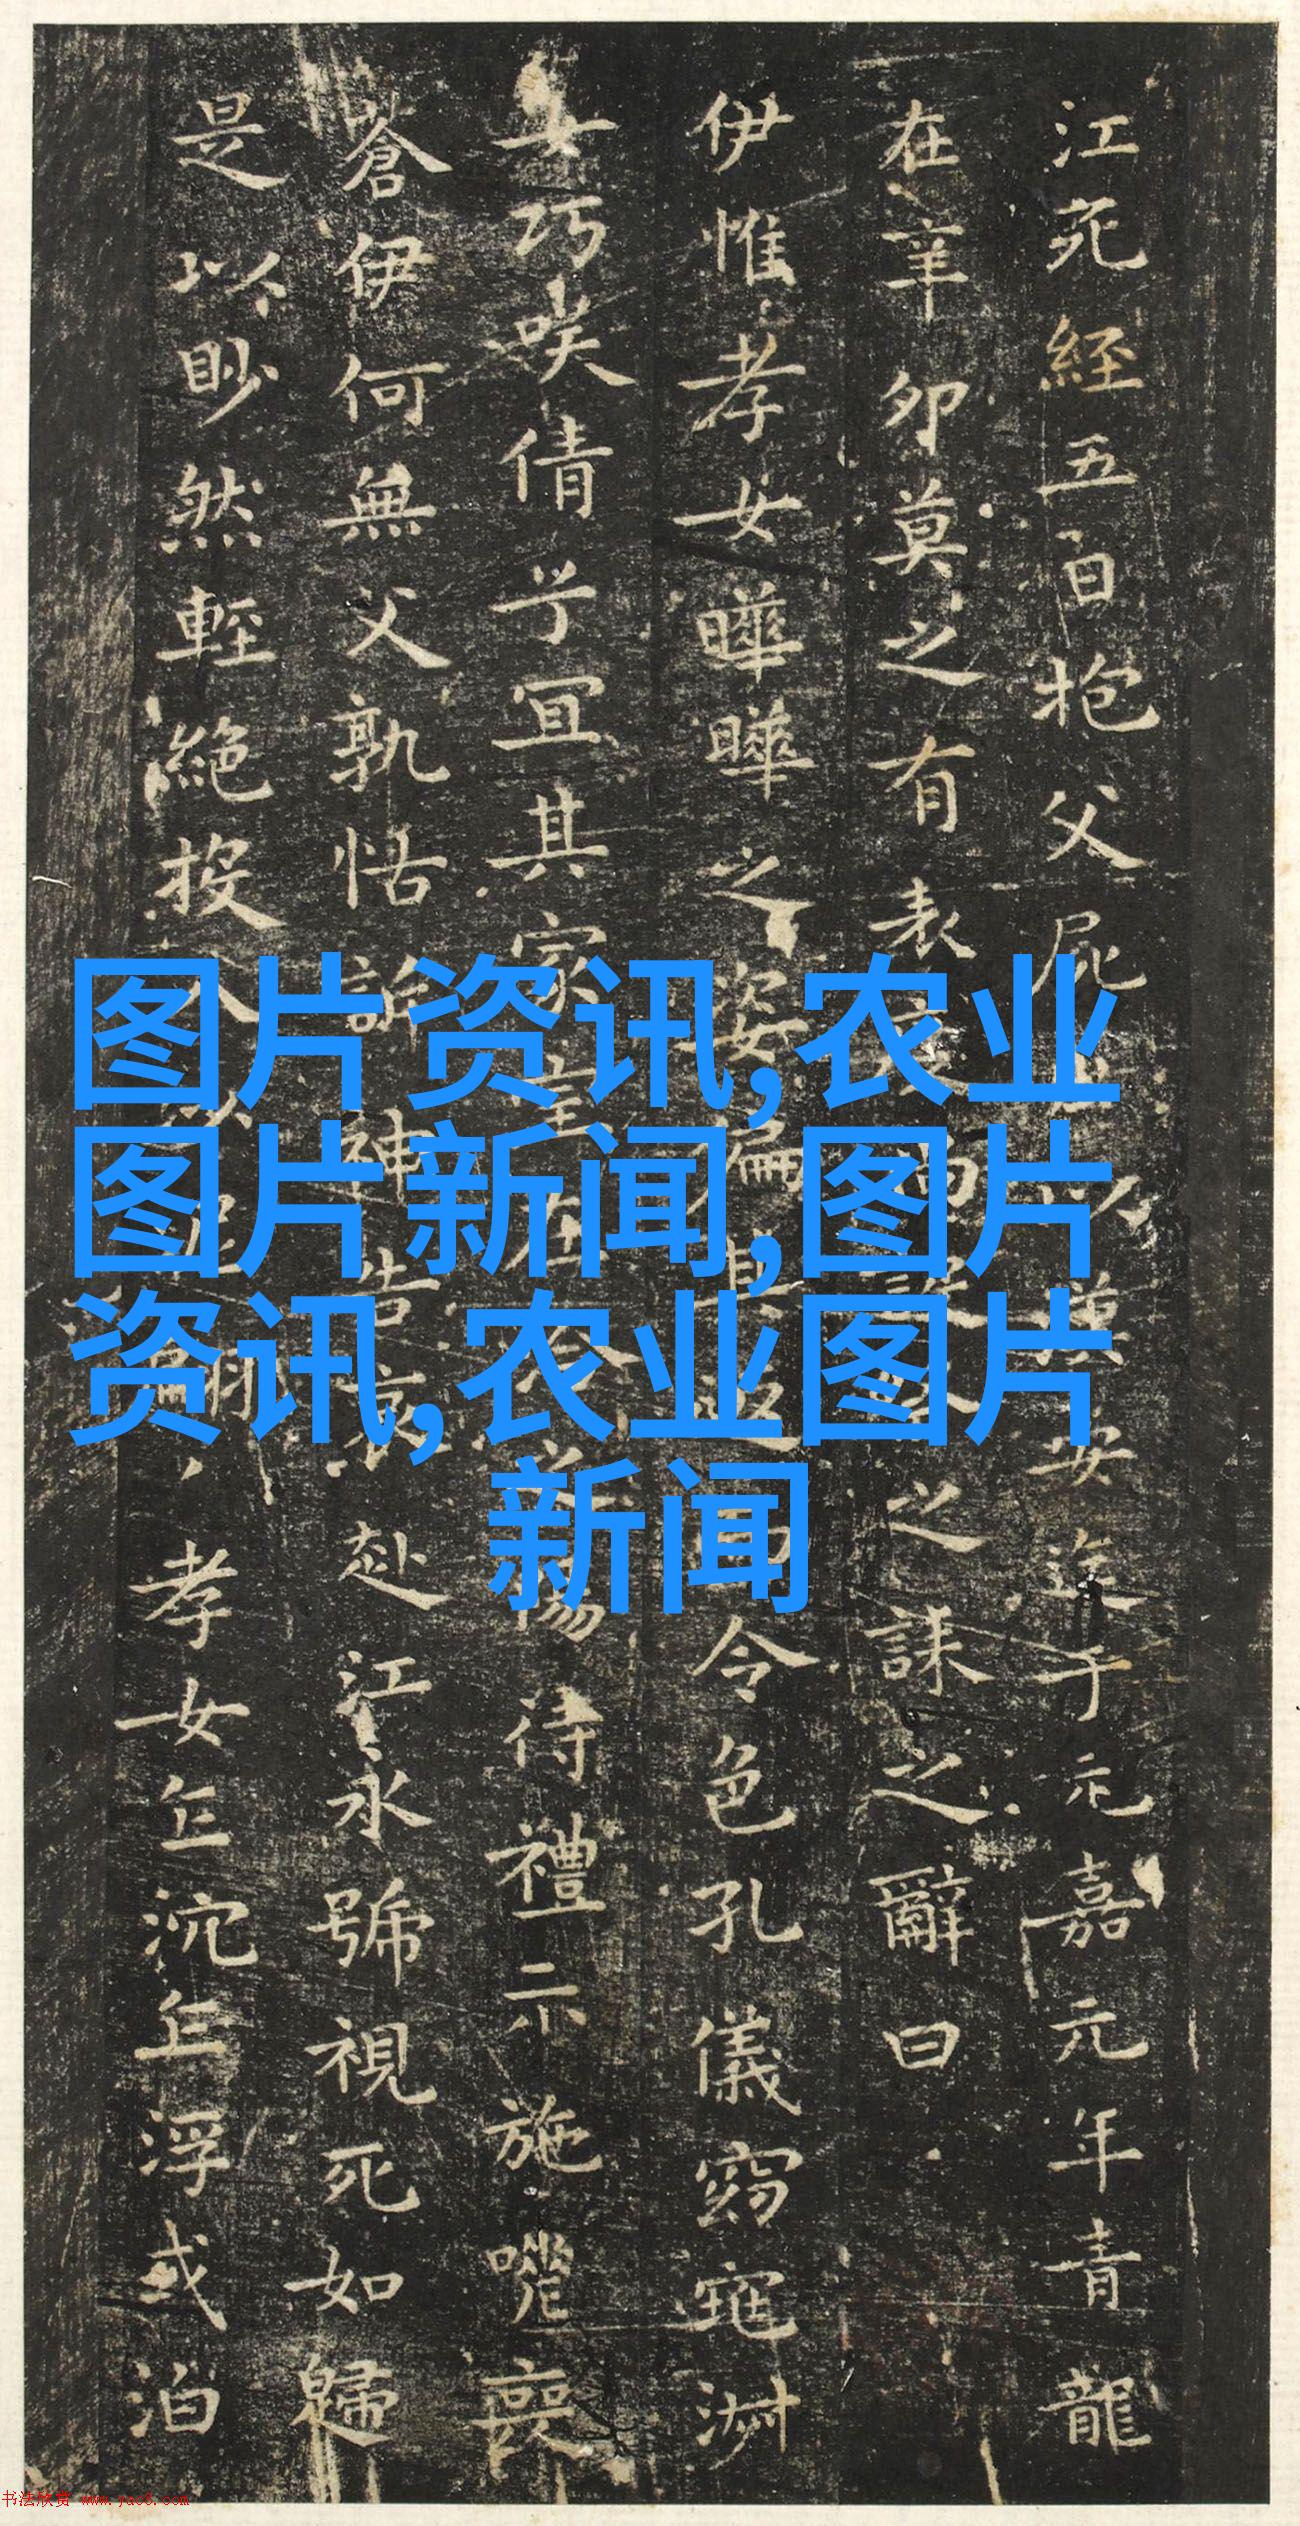 江死經五日抱父屍
于元嘉元年青龍
在辛卯莫之有表
之誄之辭曰
伊惟孝女曄曄之姿偏其
令色孔儀窈窕淑
女巧咲倩兮宜其家室在
待禮未施嗟喪
蒼伊何無父孰怙訴神告哀
赴江永號視死如歸
是以眇然輕絕投入
孝女乍沉乍浮或泊
图片资讯,农业
图片新闻,图片
资讯,农业图片
新闻
书法欣赏 www.yac8.com